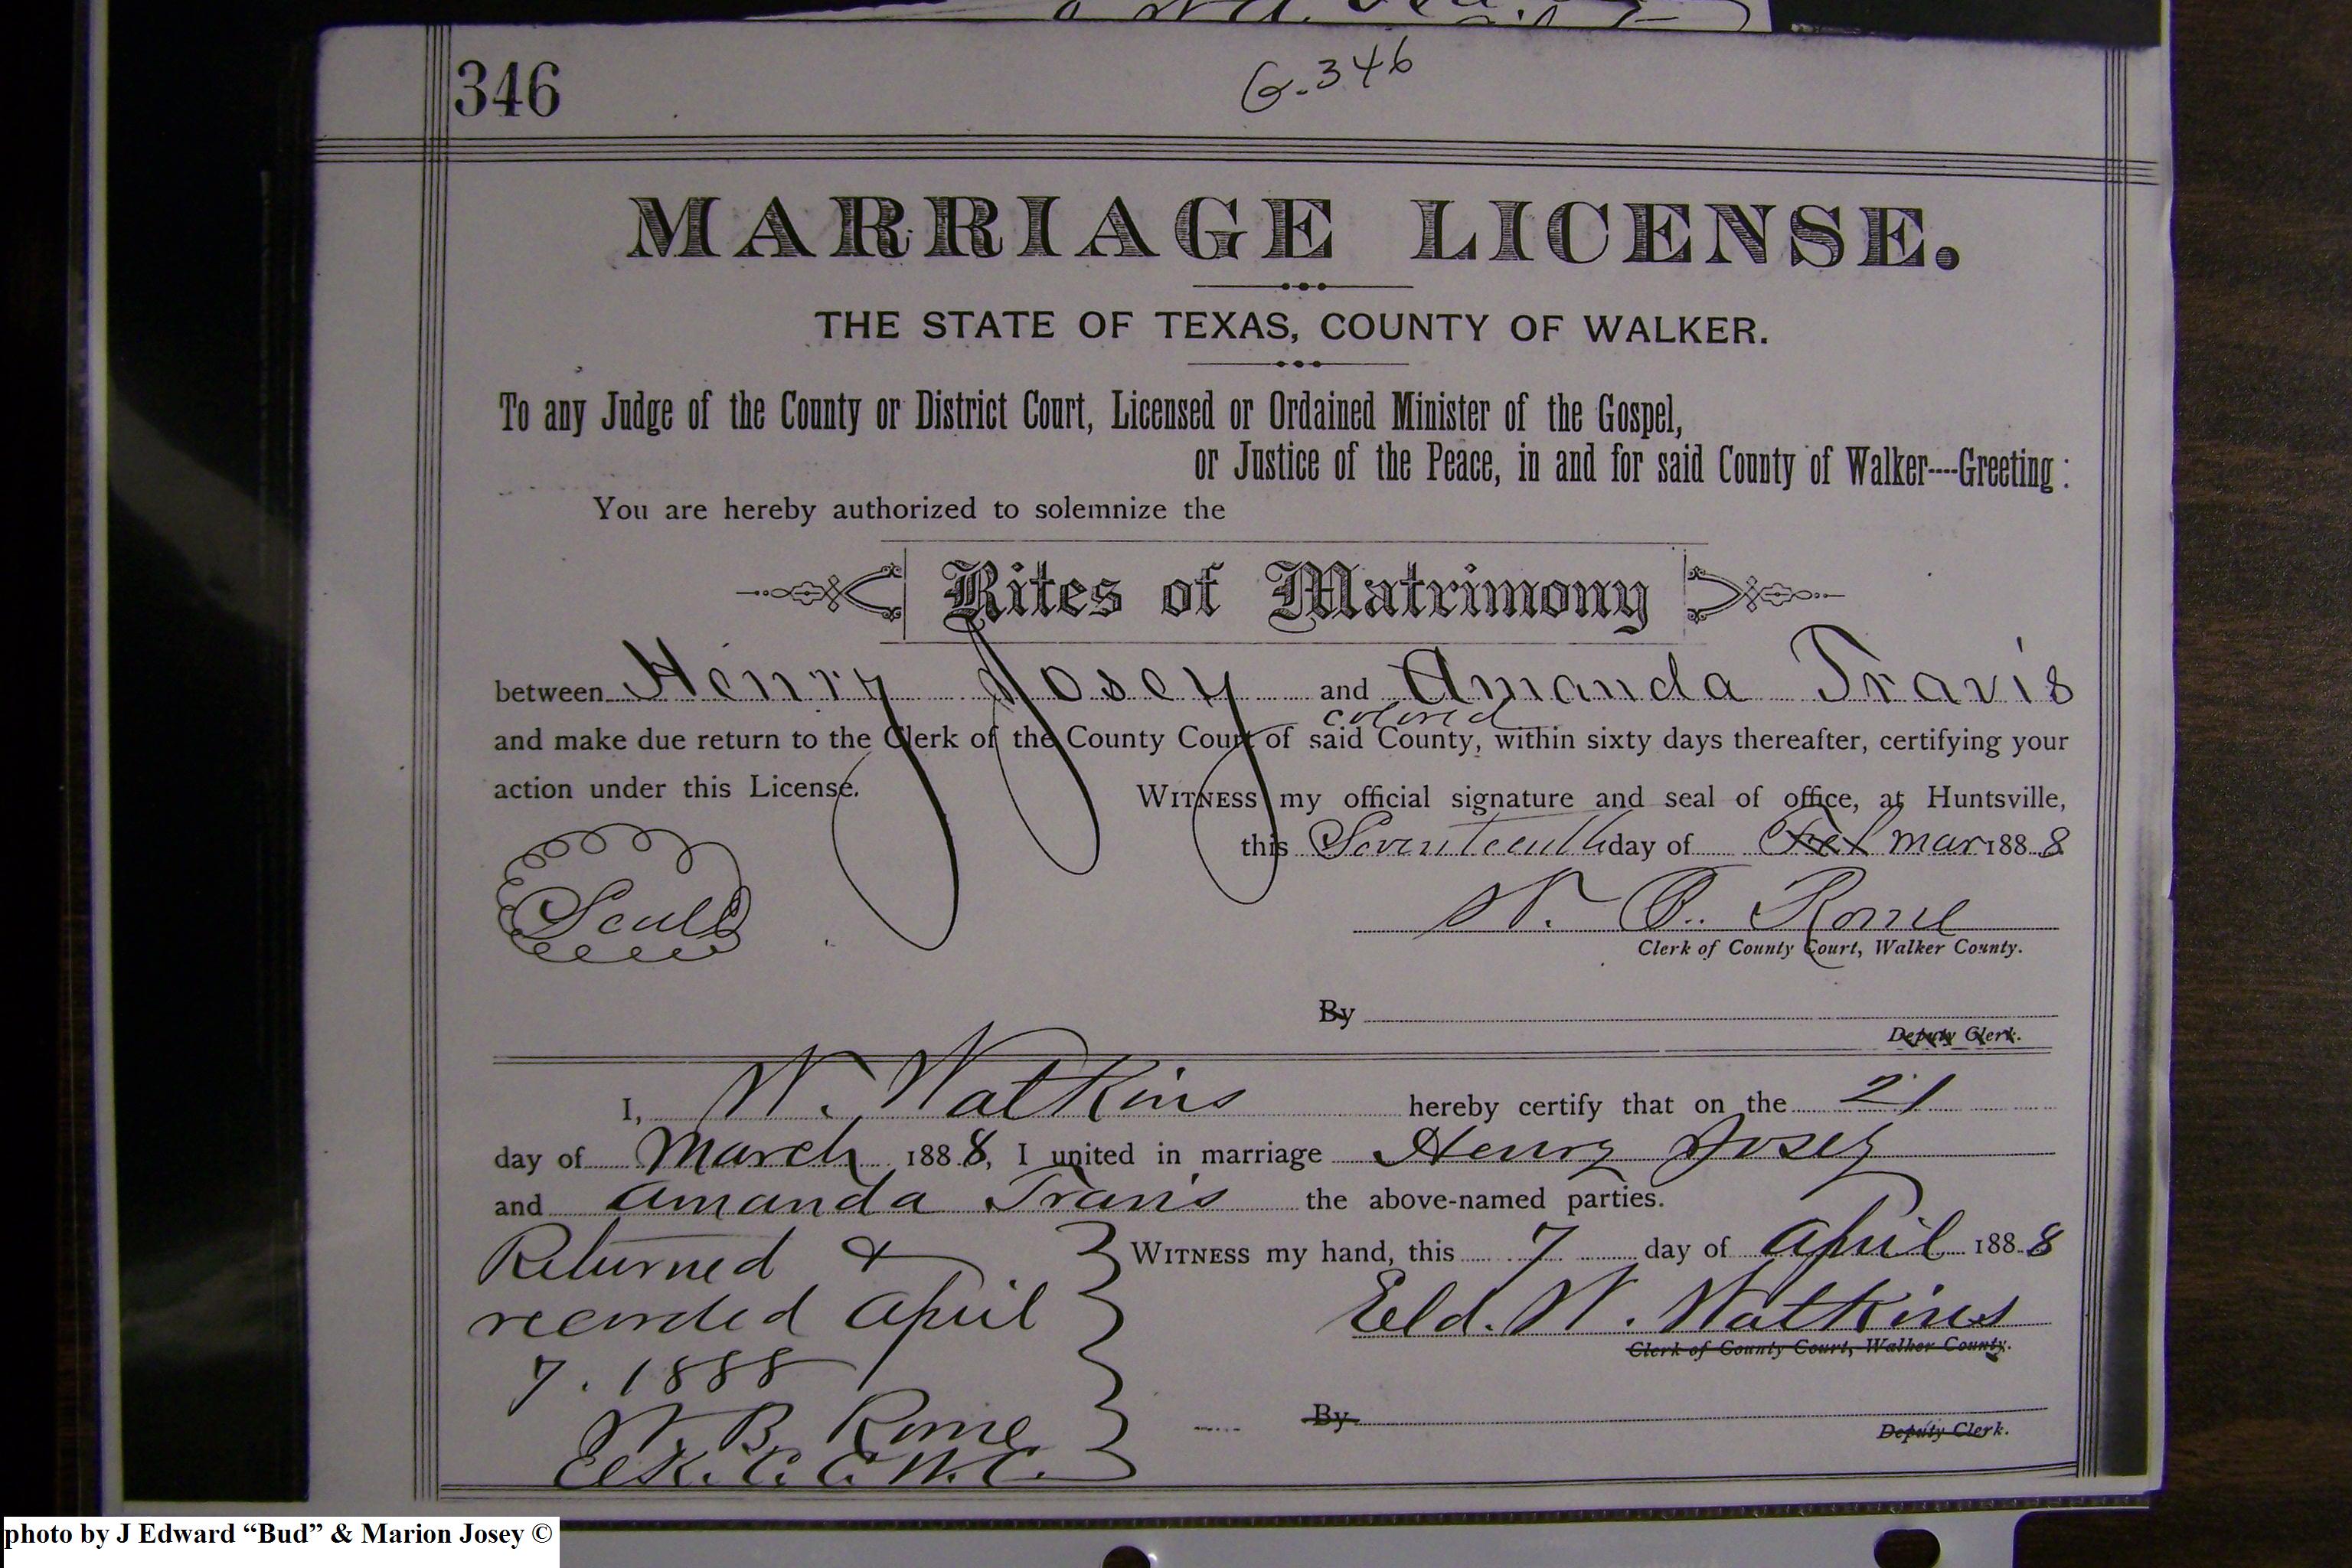 346
G. 346
MARRIAGE LICENSE.
THE STATE OF TEXAS, COUNTY OF WALKER.
To any Judge of the County or District Court, Licensed or Ordained Minister of the Gospel,
or Justice of the Peace, in and for said County of Walker----Greeting :
You are hereby authorized to solemnize the
Rites of Matrimony
between Henry Josey and Amanda Travis
colored
and make due return to the Clerk of the County Court of said County, within sixty days thereafter, certifying your
action under this License.
WITNESS my official signature and seal of office, at Huntsville,
this Seventeenth day of Feb Mar 1888
Seal
W. B. Rome
Clerk of County Court, Walker County.
By
Deputy Clerk.
I, W. Watkins hereby certify that on the 21
day of March 1888, I united in marriage Henry Josey
and Amanda Travis the above-named parties.
WITNESS my hand, this 7 day of April 1888
Returned &
recorded April
7. 1888
W. B. Rome
Clk. C. C. W. C.
Eld. W. Watkins
Clerk of County Court, Walker County.
By
Deputy Clerk.
photo by J Edward “Bud” & Marion Josey ©